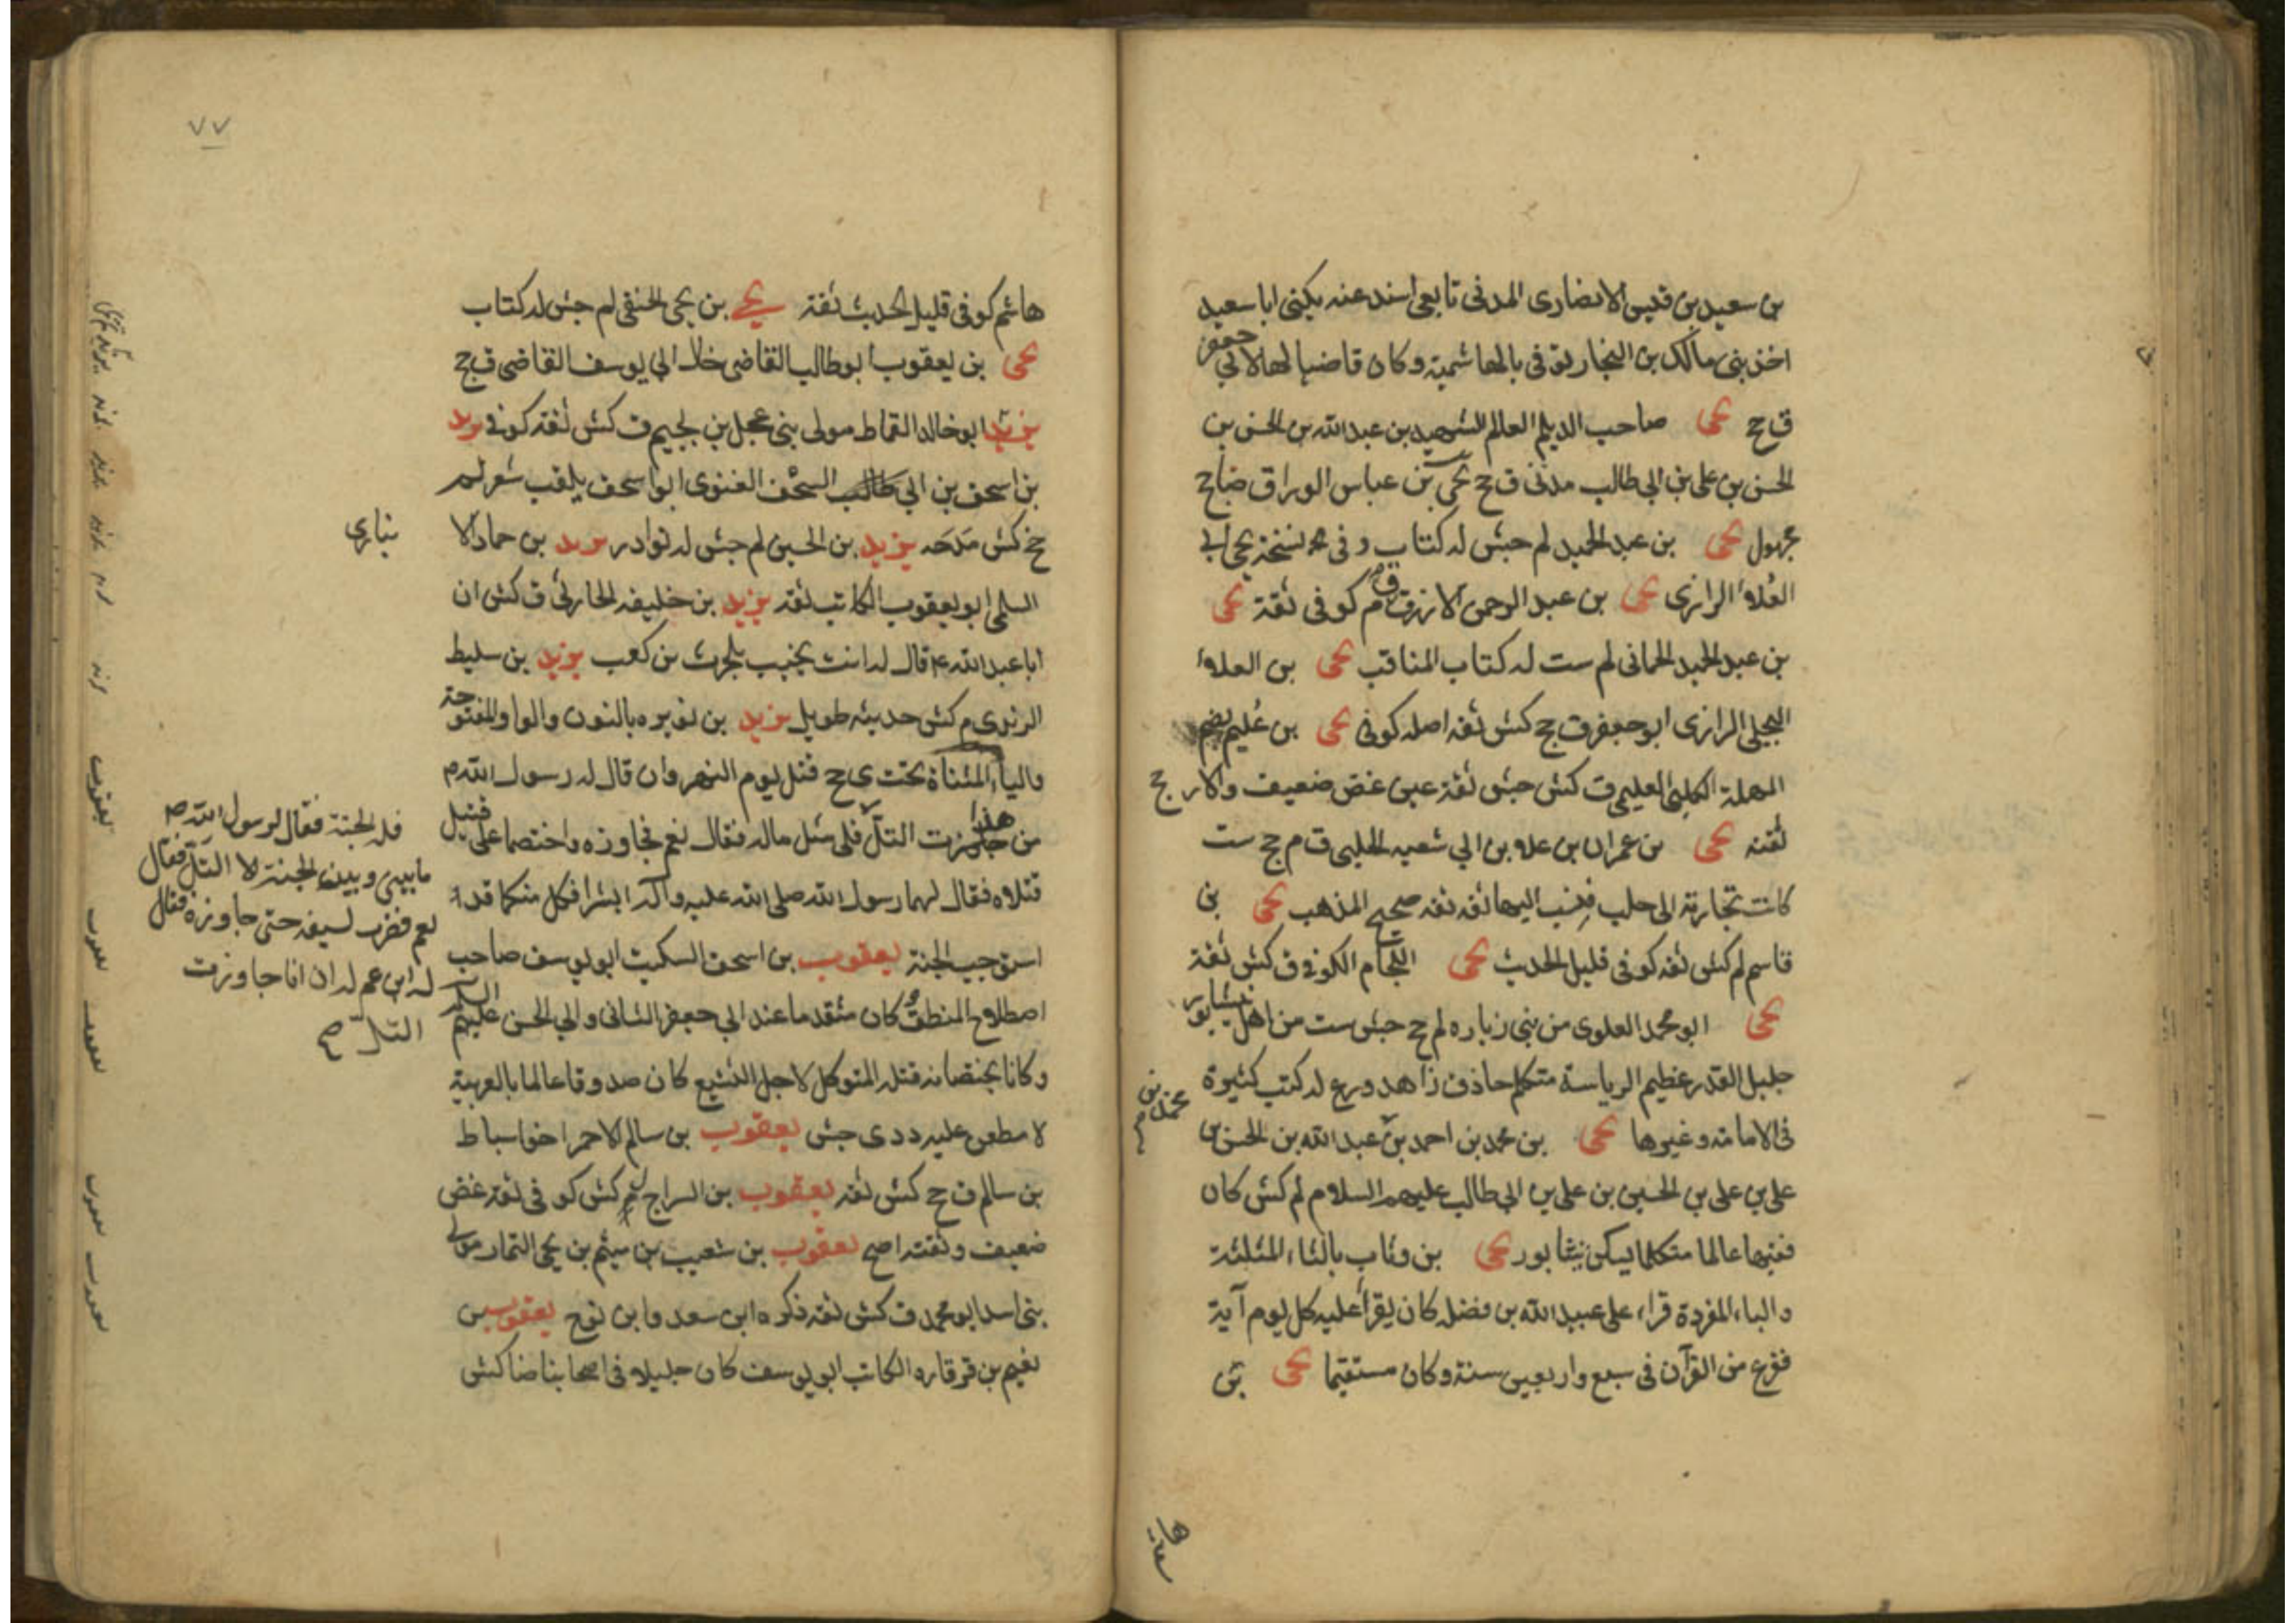 بن سعيد بن قيس الانصارى المدنى تابعى اسند عنه يكنى ابا سعيد
اخذ بنى مالك بن النجار توفى بالهاشمية وكان قاضيا لها لابي جعفر
ق ج يحى صاحب الديلم العالم الشهيد بن عبدالله بن الحسن بن
الحسن بن على بن ابي طالب مدنى ق ج يحى بن عباس الوراق ضا ج
مجهول يحى بن عبد الحميد لم جش له كتاب وفى نسخة يحى ابي
العلاء الرازى يحى بن عبد الرحمن الازرق ق م كوفى ثقة يحى
بن عبد الحميد الحمانى لم ست له كتاب المناقب يحى بن العلاء
البجلى الرازى ابو جعفر ق جخ كش ثقه اصله كوفى يحى بن عُليم بضم
المهملة الكلبى العليمى ق كش جش ثقة عين غض ضعيف والارجح
ثقته يحى بن عمران بن على بن ابي شعبه الحلبى ق م جخ ست
كانت تجارته الى حلب فنسب اليها ثقه ثقه صحيح المذهب يحى بن
قاسم لم كش ثقه كوفى قليل الحديث يحى اللحام الكوفى ق كش ثقة
يحى ابو محمد العلوى من بنى زباره لم ج جش ست من اهل نيشابور
جليل القدر عظيم الرياسة متكلم حاذق زاهد ورع له كتب كثيرة
فى الامامة وغيرها يحى بن محمد بن احمد بن عبدالله بن الحسن بن
محمد بن
على بن على بن الحسين بن على بن ابى طالب عليهم السلام لم كش كان
فقيها عالما متكلما يسكن نيشابور يحى بن وثاب بالثاء المثلثة
والباء المفردة قراء على عبيد الله بن فضله كان يقرأ عليه كل يوم آية
ففرغ من القرآن فى سبع واربعين سنة وكان مستقيما يحى بن
٧٧
هاشم كوفى قليل الحديث ثقة يحى بن يحى الحنفى لم جش له كتاب
يحى بن يعقوب ابو طالب القاضى خال ابي يوسف القاضى ق جخ
يزيد ابو خالد القماط مولى بنى عجل بن لجيم ق كش ثقه كوفى يزيد
بن اسحق بن ابي السخف الغنوى ابو اسحق يلقب شعر لم
جخ كش مَدَحَه يزيد بن الحسين لم جش له نوادر يزيد بن حماد الا
نبارى
السلمى ابو يعقوب الكاتب ثقه يزيد بن خليفه الحارثى ق كش ان
ابا عبد الله ع قال له انت نجيب بلحرث بن كعب يزيد بن سليط
الزيدى م كش حديثه طويل يزيد بن نويره بالنون والواو المفتوحة
والياء المثناة تحت ى ج قتل يوم النهروان قال له رسول الله ص
من جاوز هذا التلّ فله الجنة فقال لرسول الله ص
ما بينى وبين الجنة الا التلّ فقال
نعم فضرب بسيفه حتى جاوزه فقال
له ابن عم له ان انا جاوزت
التلّ صح
فلى مثل ماله فقال نعم فجاوزه واختصما على قتيل
قتلاه فقال لهما رسول الله صلى الله عليه وآله ابشرا فكل منكما قد
استوجب الجنة يعقوب بن اسحق السكيت ابو يوسف صاحب
اصطلاح المنطق كان متقدما عند ابي جعفر الثانى وابي الحسن عليهم السلام
وكانا يختصانه قتله المتوكل لاجل التشيع كان صدوقا عالما بالعربية
لا مطعن عليه د دى جش يعقوب بن سالم الاحمر اخو اسباط
بن سالم ق ج كش ثقه يعقوب بن السراج كش كوفى ثقة غض
ضعيف وثقته اصح يعقوب بن شعيب بن ميثم بن يحى التمار مولى
بنى اسد ابو محمد ق كش ثقه ذكره ابن سعد وابن نوح يعقوب بن
نعيم بن قرقاره الكاتب ابو يوسف كان جليلا فى اصحابنا ضا كش